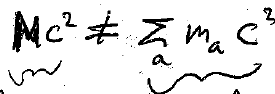 Mc² ≠ ∑ₐ mₐ c²